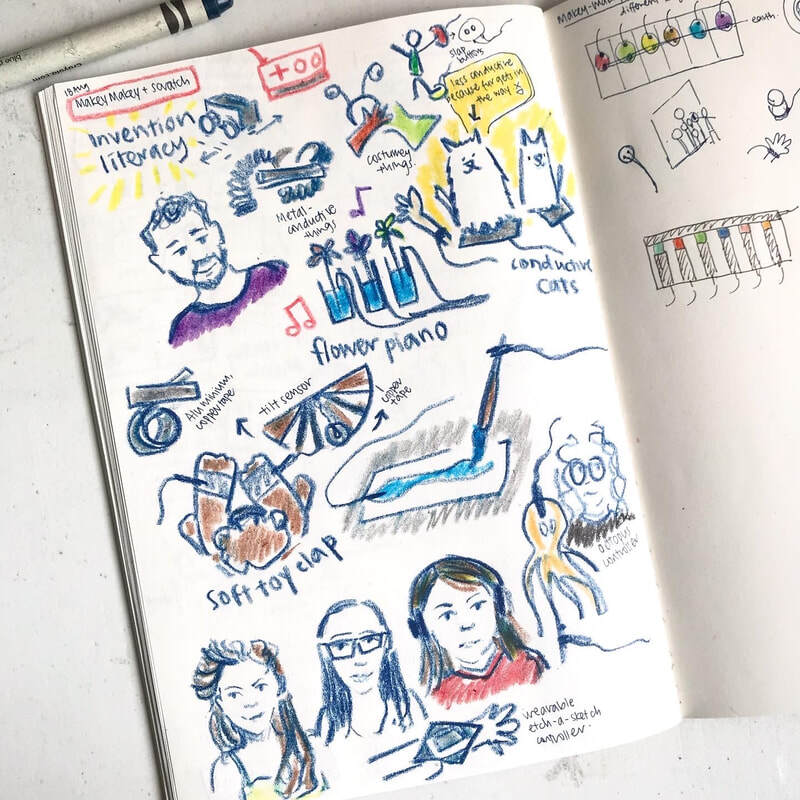 Makey Makey + scratch
invention
literacy
slap
buttons
less conductive
because fur gets in
the way
costumey
things.
Metal-
conductive
things
conductive
cats
flower piano
Aluminium,
copper tape
tilt sensor
copper
tape
soft toy clap
octopus
controller
wearable
etch-a-sketch
controller.
different
earth.
crayola.com